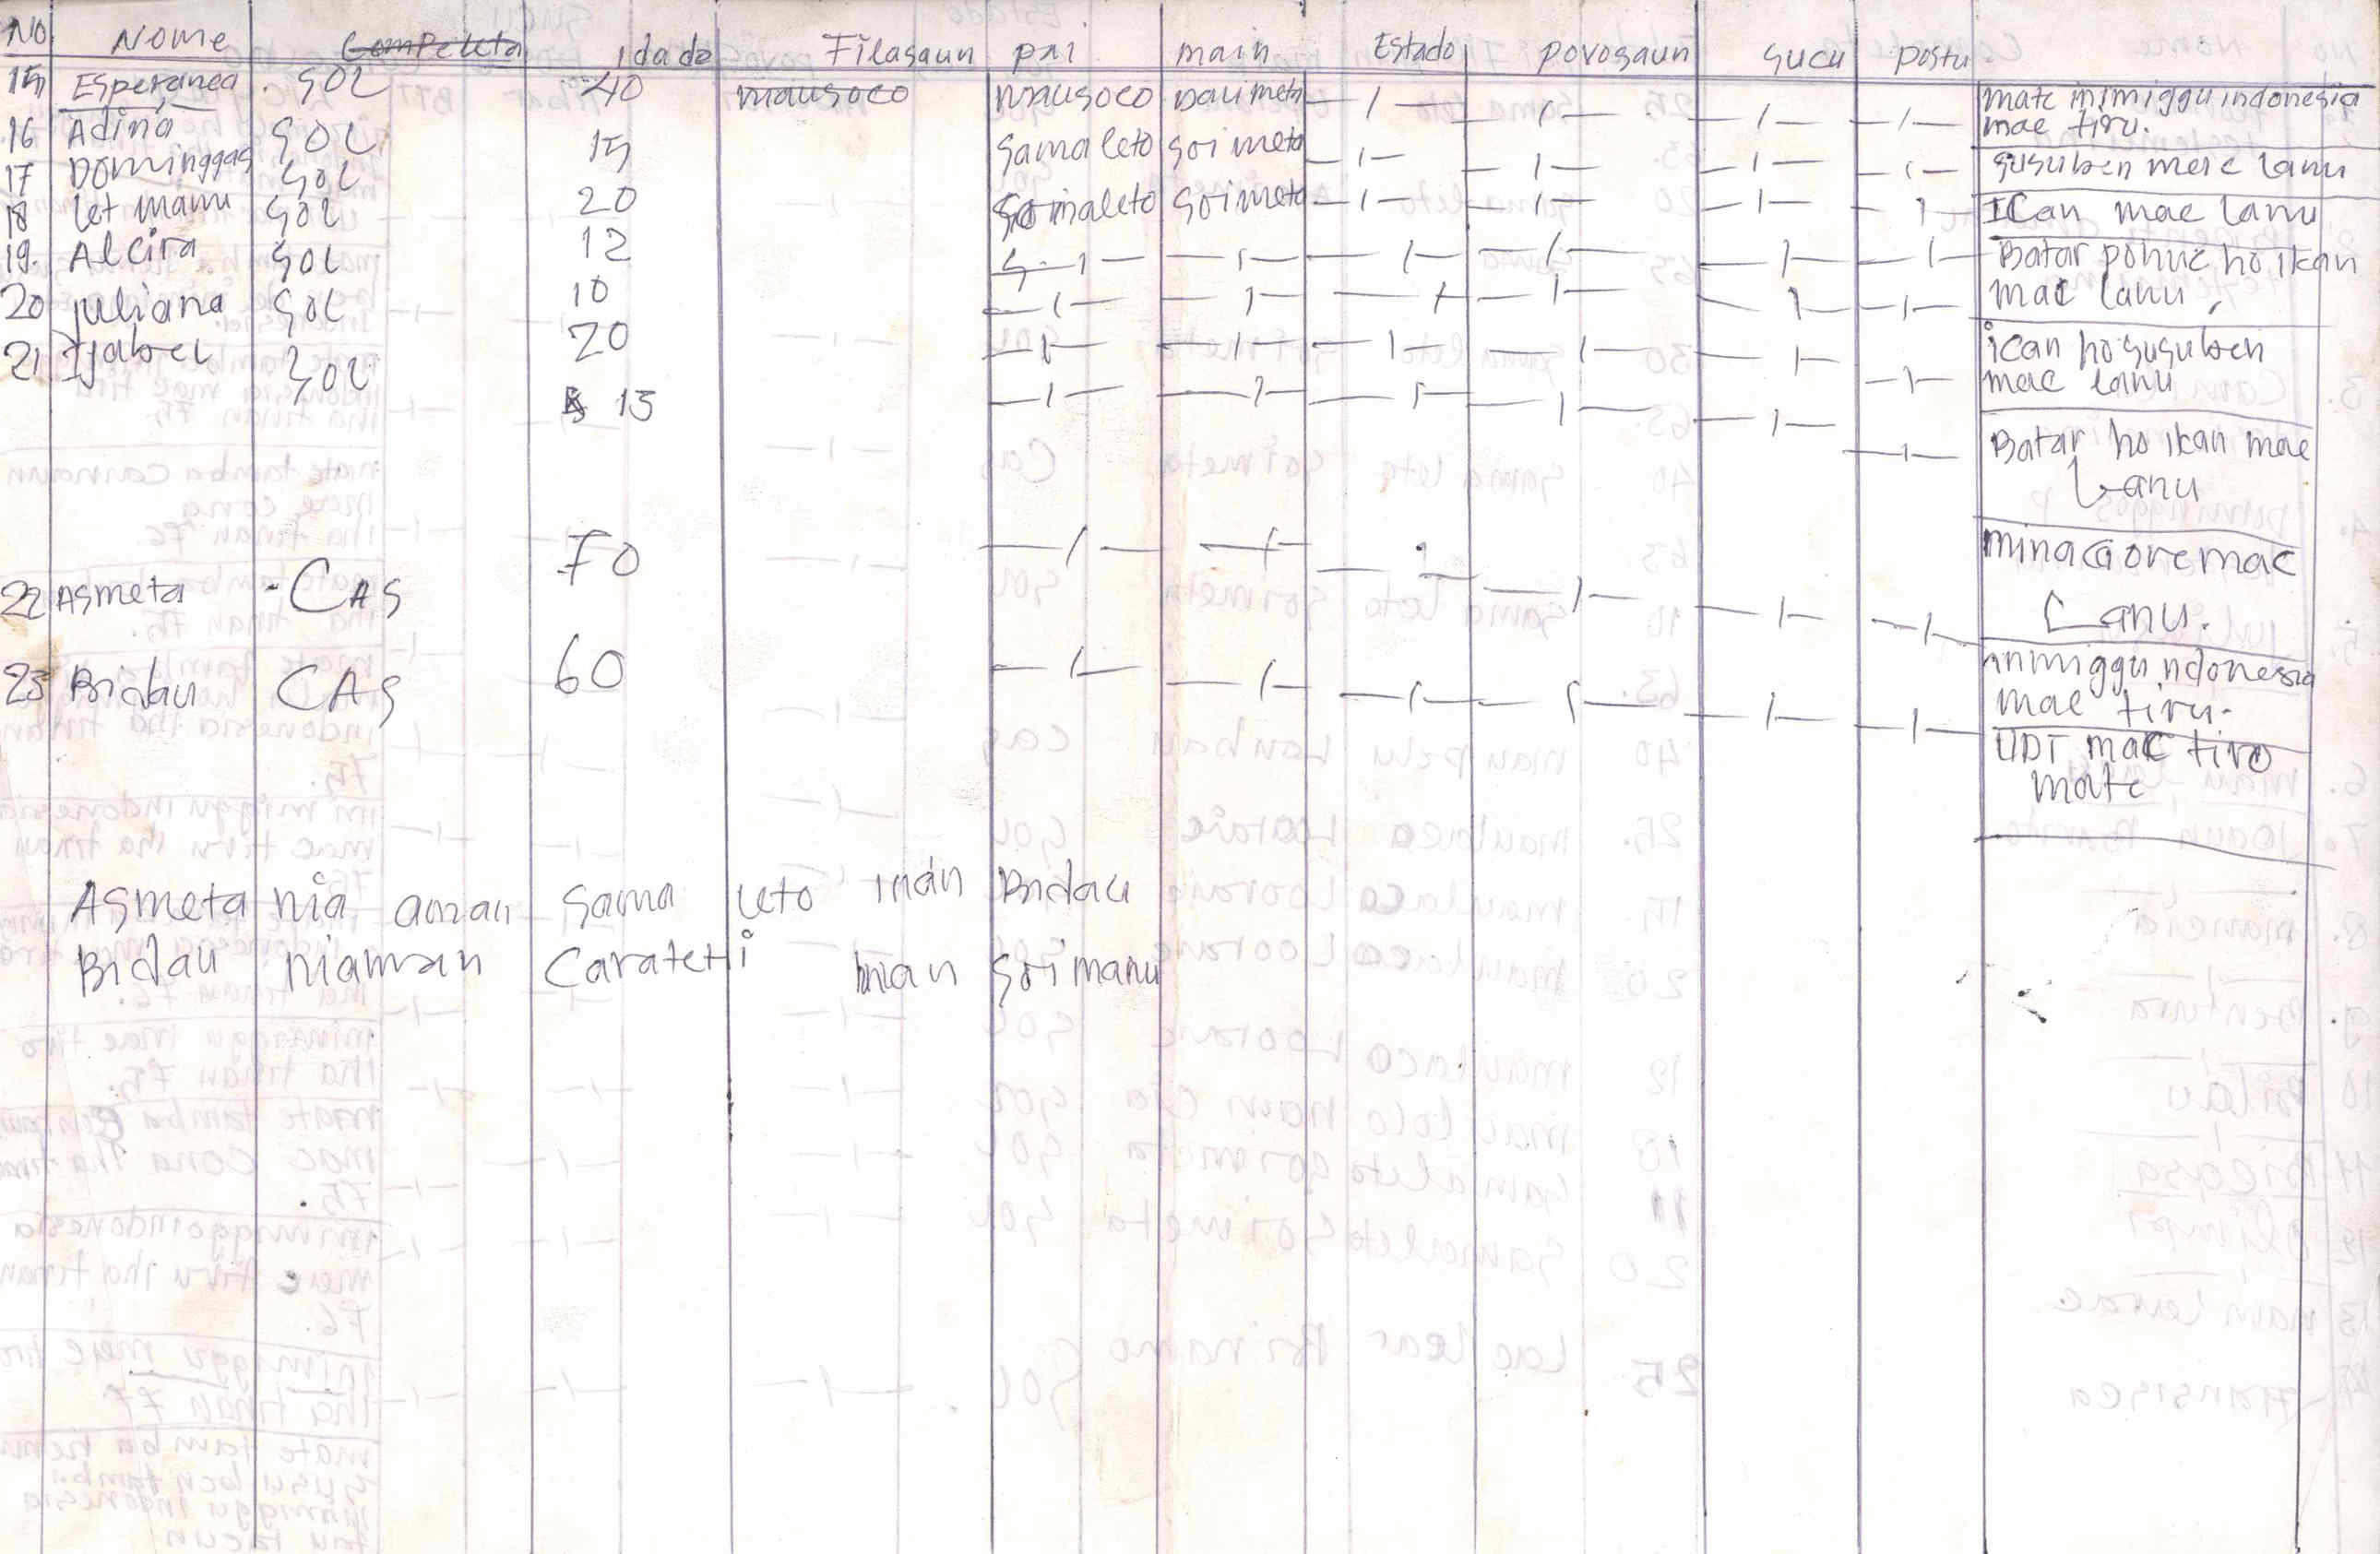 No Nome Compelcta Idade Filasaun pai main Estado povosaun sucu postu
15 Esperanca SOL 40 mausoco mausoco Daumeta -/- -/- -/- -/- mate inimiggu indonesia
mae tiru.
16 Adina SOL 15 Sama leto Soi meta -/- -/- -/- -/- susuben mae lanu
17 Dominggas SOL 20 Soi maleto Soi meta -/- -/- -/- -/- Ican mae lanu
18 let manu SOL 12 S. -/- -/- -/- -/- -/- -/- Batar pohuc ho ikan
mac lanu,
19. Alcira SOL 10 -/- -/- -/- -/- -/- -/- ican ho susuben
mac lanu
20 juliana SOL 20 -/- -/- -/- -/- -/- -/- Batar ho ikan mae
Lanu
21 Isabel SOL 15 -/- -/- -/- -/- -/- -/-
22 Asmeta CAS 70 -/- -/- -/- -/- -/- -/- lanu.
23 Bidau CAS 60 -/- -/- -/- -/- -/- -/- inmiggu indonesia
mae tiru.
UDT mac tiro
mate
Asmeta nia aman Sama leto inan Bidau
Bidau niaman Carateti inian Soi manu